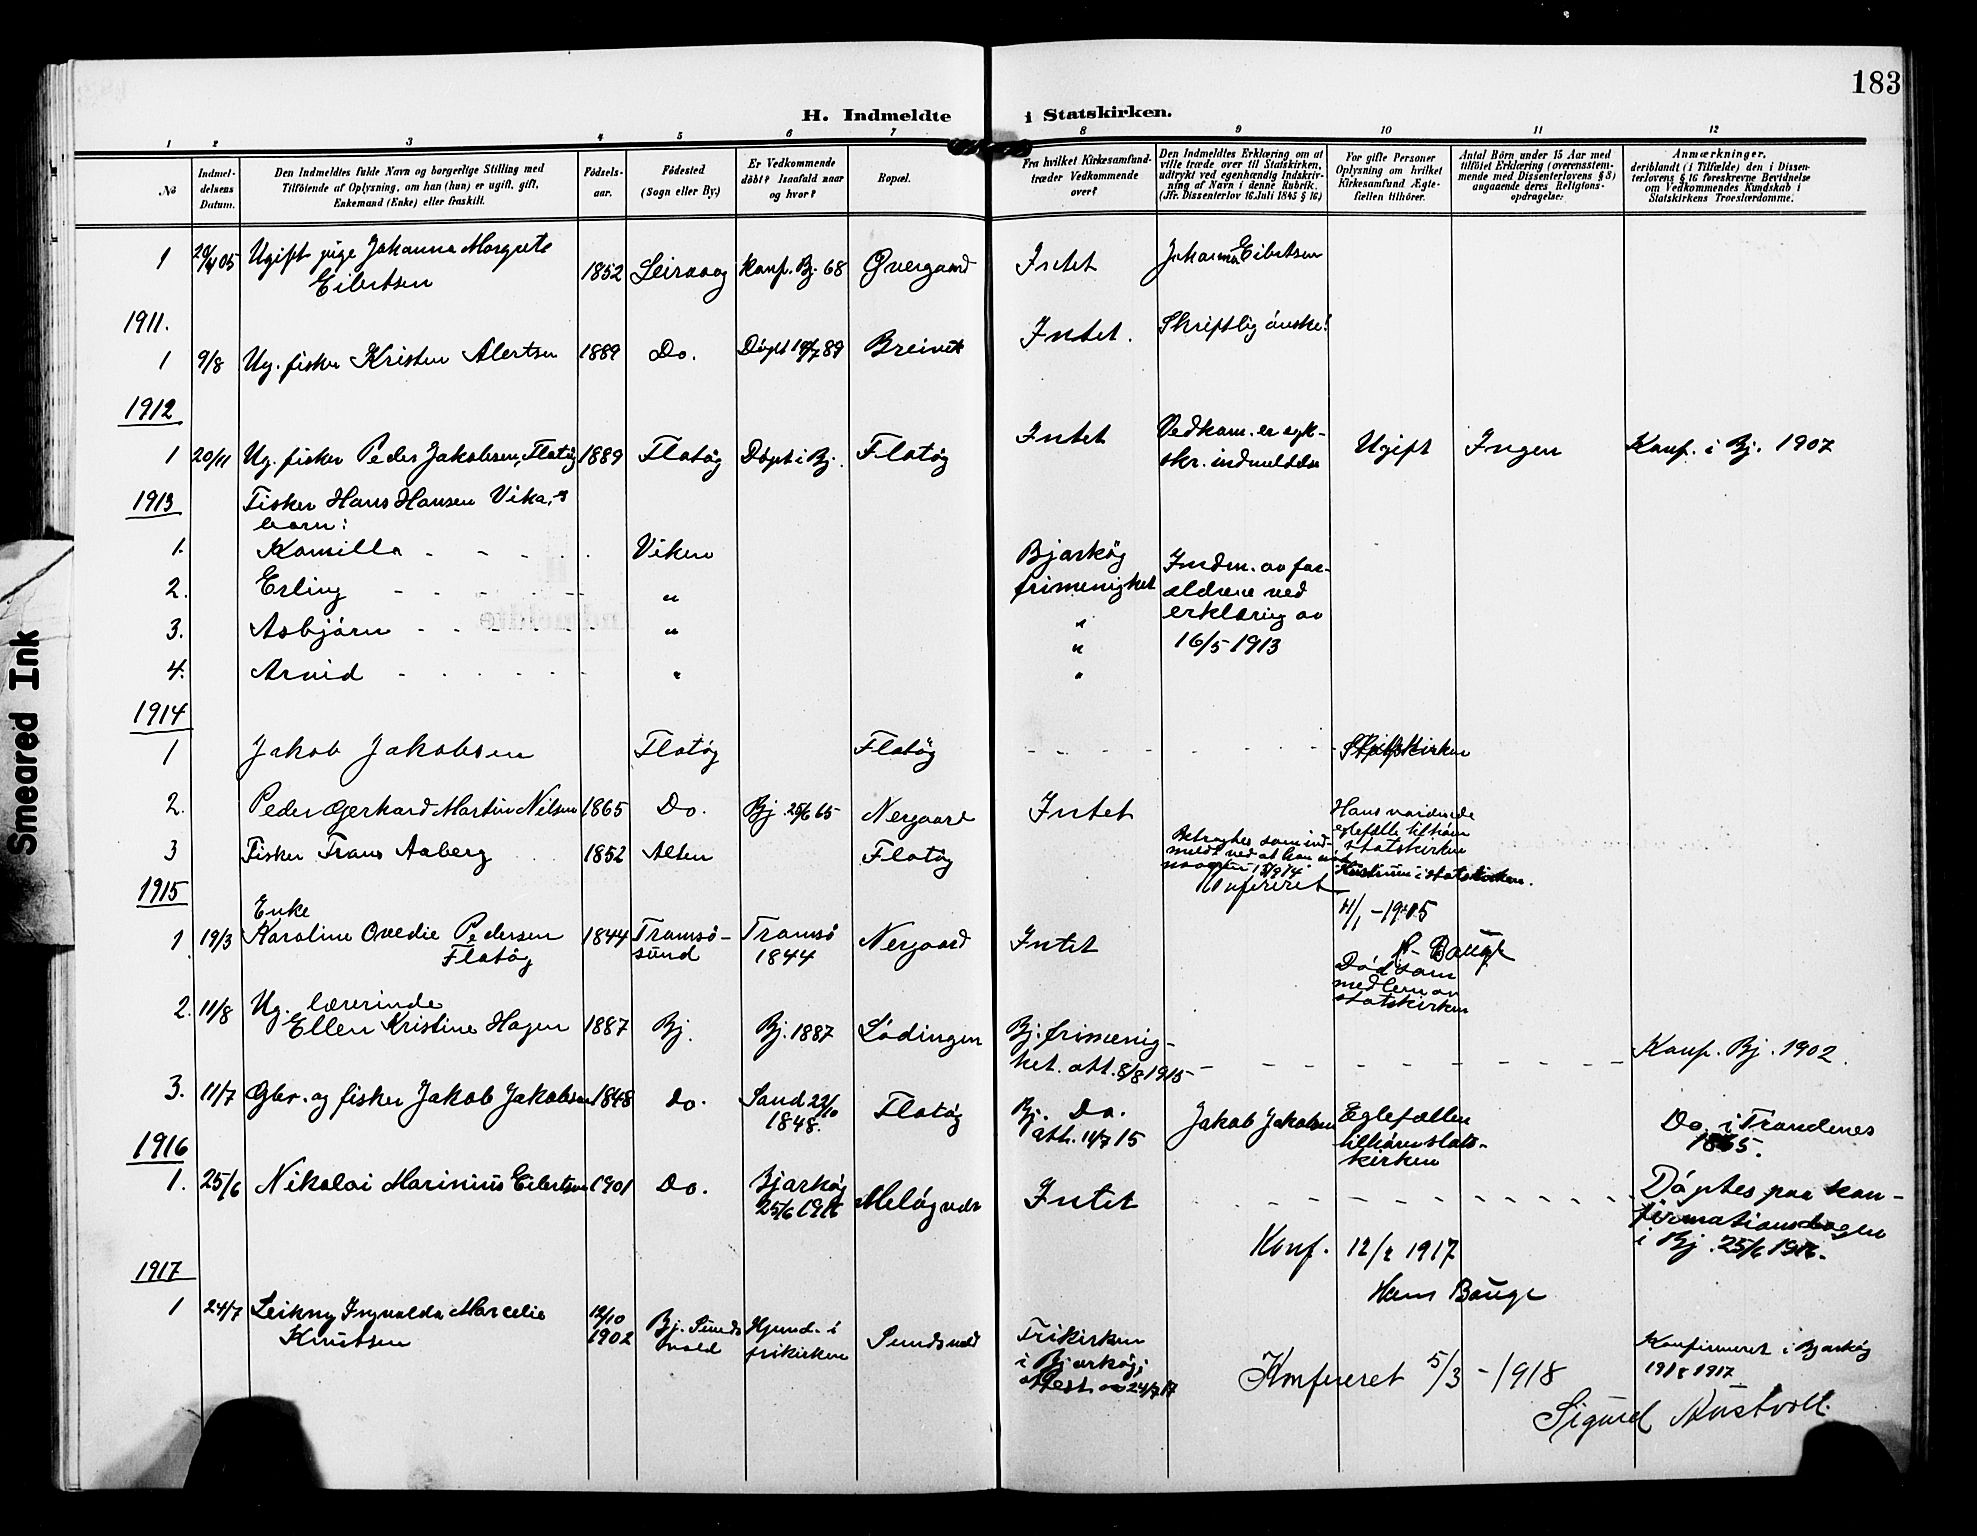 183
H. Indmeldte i Statskirken.
1 2 3 4 5 6 7 8 9 10 11 12
No
Indmeldelsens Datum.
Den Indmeldtes fulde Navn og borgerlige Stilling med
Tilföiende af Oplysning, om han (hun) er ugift, gift,
Enkemand (Enke) eller fraskilt.
Födselsaar.
Födested
(Sogn eller By.)
Er Vedkommende
döbt? Isaafald naar
og hvor?
Bopæl.
Fra hvilket Kirkesamfund
træder Vedkommende
over?
Den Indmeldtes Erklæring om at
ville træde over til Statskirken,
udtrykt ved egenhændig Indskrivning
af Navn i denne Rubrik.
(Jfr. Dissenterlov 16 Juli 1845 § 16)
For gifte Personer
Oplysning om hvilket
Kirkesamfund Ægtefællen
tilhörer.
Antal Börn under 15 Aar med
tilföiet Erklæring (overensstemmende
med Dissenterlovens § 8)
angaaende deres Religionsopdragelse:
Anmærkninger,
deriblandt (i Tilfælde) den i Dissenterlovens
§ 16 foreskrevne Bevidnelse
om Vedkommendes Kundskab i
Statskirkens Troeslærdomme.
1 20/4 05 Ugift pige Johanna Margrete
Eilertsen 1852 Leirvaag Konf. Bj. 68 Øvergaard Intet Johanna Eilertsen
1911.
1 9/8 Ug. fisker Kristen Alertsen 1889 Do. Døpt 89 Breivik Intet. Skriftlig ønske!
1912
1 20/11 Ug. fisker Peder Jakobsen, Flatøy 1889 Flatøy Døpt i Bj. Flatøy Intet Vedkom. er
skr. indmeldelse Ugift Ingen Konf. i Bj. 1907
1913 Fisker Hans Hansen Vika,s
barn:
1. Kamilla Viken Bjarkøy
2. Erling " frimenighet
3. Asbjørn " "
4. Arvid " "
Indm. av forældrene
ved
erklæring av
16/5 1913
1914
1 Jakob Jakobsen Flatøy Flatøy Statskirken
2. Peder Gerhard Martin Nilsen 1865 Do. Bj. 25/6 65 Nergaard Intet Hans
egtefælle tilhører
statskirken
3 Fisker Frans Aaberg 1852 Alten Flatøy Betragtes som indmeldt
ved at han
i statskirken.
Konfereret
11/1 - 1915
H. Bauge
1915
1 19/3 Enke
Karoline Ovedie Pedersen
Flatøy 1844 Tromsøsund Tromsø
1844 Nergaard Intet Død som
medlem av
statskirken
2. 11/8 Ug. lærerinde
Ellen Kristine Hagen 1887 Bj. Bj. 1887 Lødingen Bj. frimenighet.
att. 8/8 1915 Konf. Bj. 1902.
3. 11/7 Gbr. og fisker Jakob Jakobsen 1848 Do. Sand 22/10
1848. Flatøy Bj. Do.
att. 11/7 15 Jakob Jakobsen Egtefællen
tilhører statskirken
Do. i Trondenes
1865.
1916
1. 25/6 Nikolai Marinius Eilertsen 1901 Do. Bjarkøy
25/6 1916 Meløyvær Intet Døptes paa konfirmationsdagen
i Bj. 25/6 1916.
Konf. 12/2 1917
Hans Bauge
1917
1 24/7 Leikny Ingvalda Marcelie
Knutsen 12/10
1902 Bj. Sundsvold
Hjemd. i
frikirken Sundsvold Frikirken
i Bjarkøy;
attest av 24/7 17 Konfirmeret i Bjarkøy
1917
Konfereret 5/3 - 1918
Sigurd Austvoll.
Smeared Ink